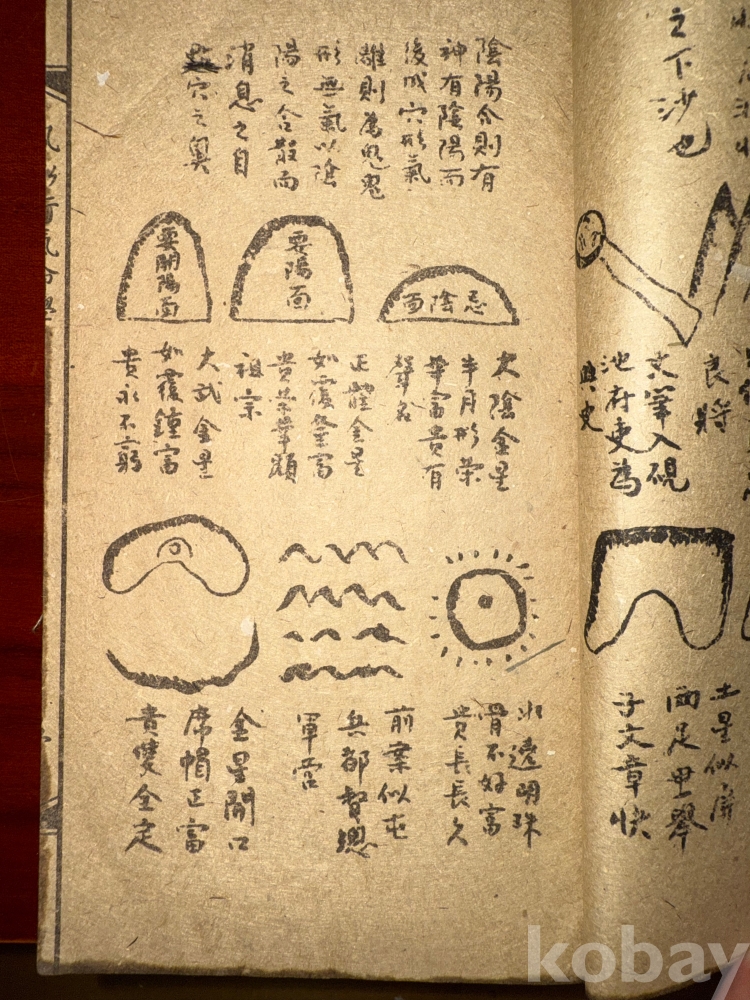 之下沙也
良將
文筆入硯
池府吏爲
興史
土星似屏
両足里舉
子文章快
陰陽合則有
神有陰陽而
後成穴形氣
離則爲鬼鬼
形無氣以陰
陽之合散而
消息之自
穴之奧
忌陰面
要陽面
要開陽面
太陰金星
半月形榮
華富貴有
聲名
正體金星
如覆釜富
貴榮華顯
祖宗
太武金星
如覆鍾富
貴永不窮
水邊明珠
骨不好富
貴長長久
前案似屯
兵都督總
軍營
金星開口
席帽正富
貴雙全定
kobay